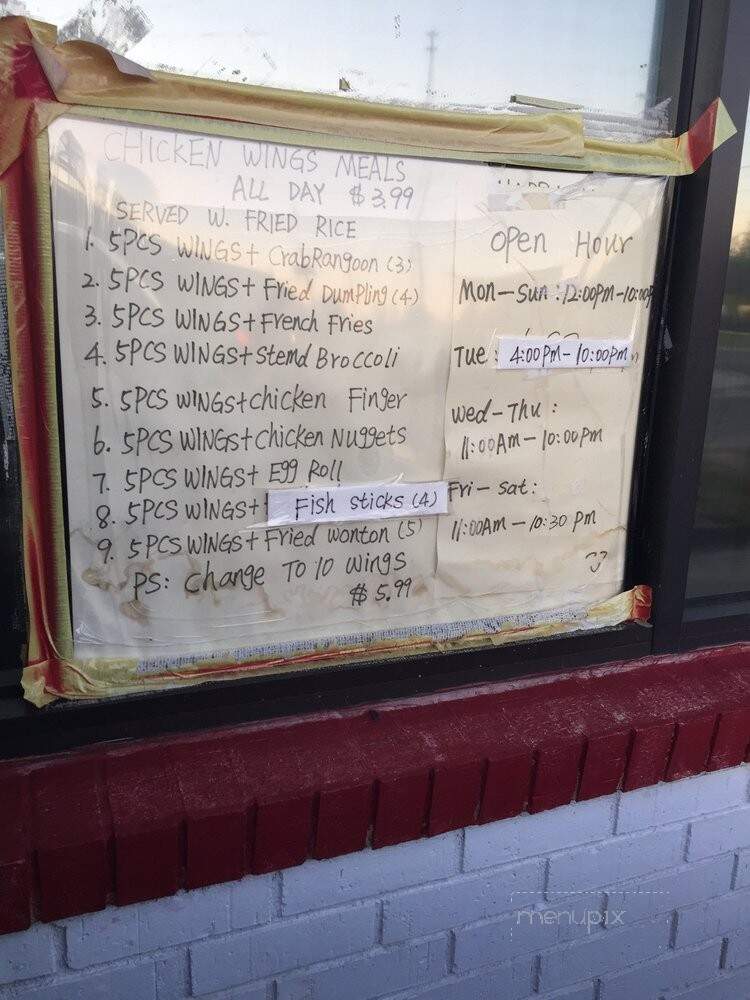 CHICKEN WINGS MEALS
ALL DAY $3.99
SERVED W. FRIED RICE
1. 5PCS WINGS+ CrabRangoon (3)
2. 5PCS WINGS+ Fried Dumpling (4)
3. 5PCS WINGS+ French Fries
4. 5PCS WINGS+ Stemd Broccoli
5. 5PCS WINGS+ chicken Finger
6. 5PCS WINGS+ Chicken Nuggets
7. 5PCS WINGS+ Egg Roll
8. 5PCS WINGS+ Fish sticks (4)
9. 5PCS WINGS+ Fried wonton (5)
PS: Change To 10 wings
$5.99
Open Hour
Mon-Sun: 12:00pm-10:00p
Tue: 4:00pm-10:00pm
Wed-Thu:
11:00Am-10:00pm
Fri-Sat:
11:00Am-10:30 pm
menupix